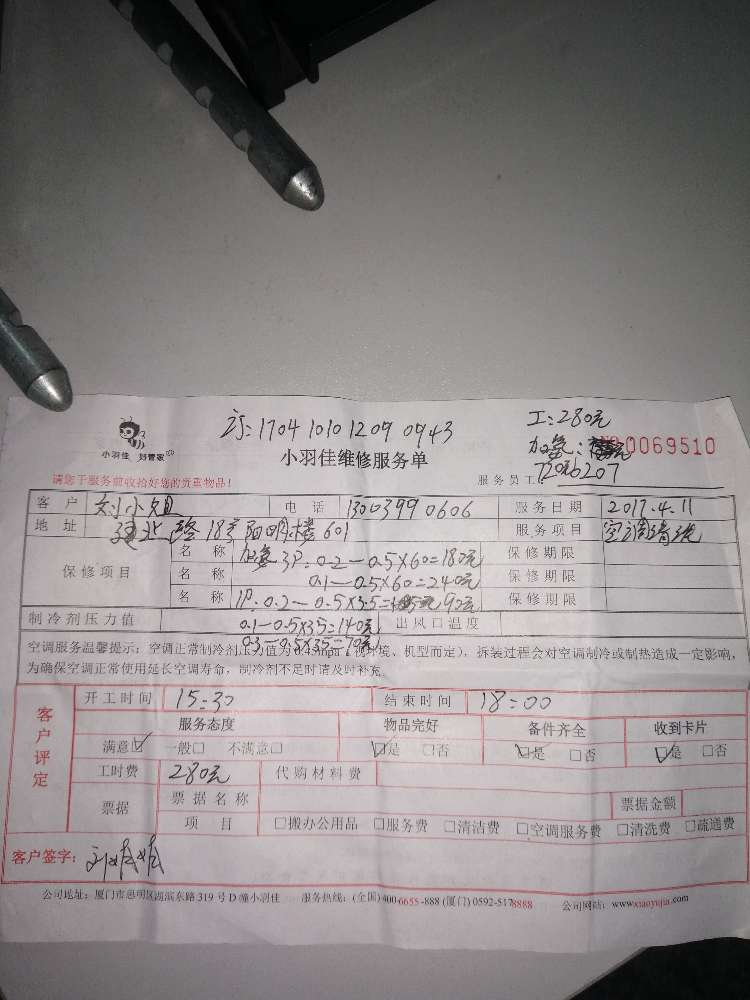 订:1704 1010 1209 0943
工:280元
小羽佳 好管家
小羽佳维修服务单
加氨:
0069510
请您于服务前收拾好您的贵重物品!
服务员工
客户 刘小姐 电话 13003990606 服务日期 2017.4.11
地址 建北路18号阳明楼601 服务项目 空调清洗
保修项目
名称 加氨3P:0.2-0.5X60=180元 保修期限
名称 0.1-0.5X60=240元 保修期限
名称 1P:0.2-0.5X35= 92元 保修期限
制冷剂压力值 0.1-0.5X35=140元 出风口温度
0.3-0.5X35=70元
空调服务温馨提示:空调正常制冷剂压力值为 环境、机型而定),拆装过程会对空调制冷或制热造成一定影响,
为确保空调正常使用延长空调寿命,制冷剂不足时请及时补充。
客户评定
开工时间 15:30 结束时间 18:00
服务态度 物品完好 备件齐全 收到卡片
满意☑ 一般□ 不满意□ ☑是 □否 ☑是 □否 ☑是 □否
工时费 280元 代购材料费
票据 票据名称 票据金额
项目 □搬办公用品 □服务费 □清洁费 □空调服务费 □清洗费 □疏通费
客户签字:
公司地址:厦门市思明区湖滨东路319号D幢小羽佳 服务热线:(全国)400-6655-888 (厦门)0592-5178888 公司网站:www.xiaoyujia.com